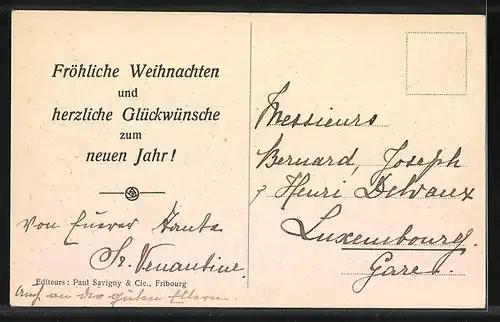 Fröhliche Weihnachten
und
herzliche Glückwünsche
zum
neuen Jahr!
von Euerer Tante
Sr. Venantine.
Editeurs: Paul Savigny & Cie., Fribourg
Auch an die guten Eltern.
Messieurs
Bernard, Joseph
& Henri Delvaux
Luxembourg.
Gare.